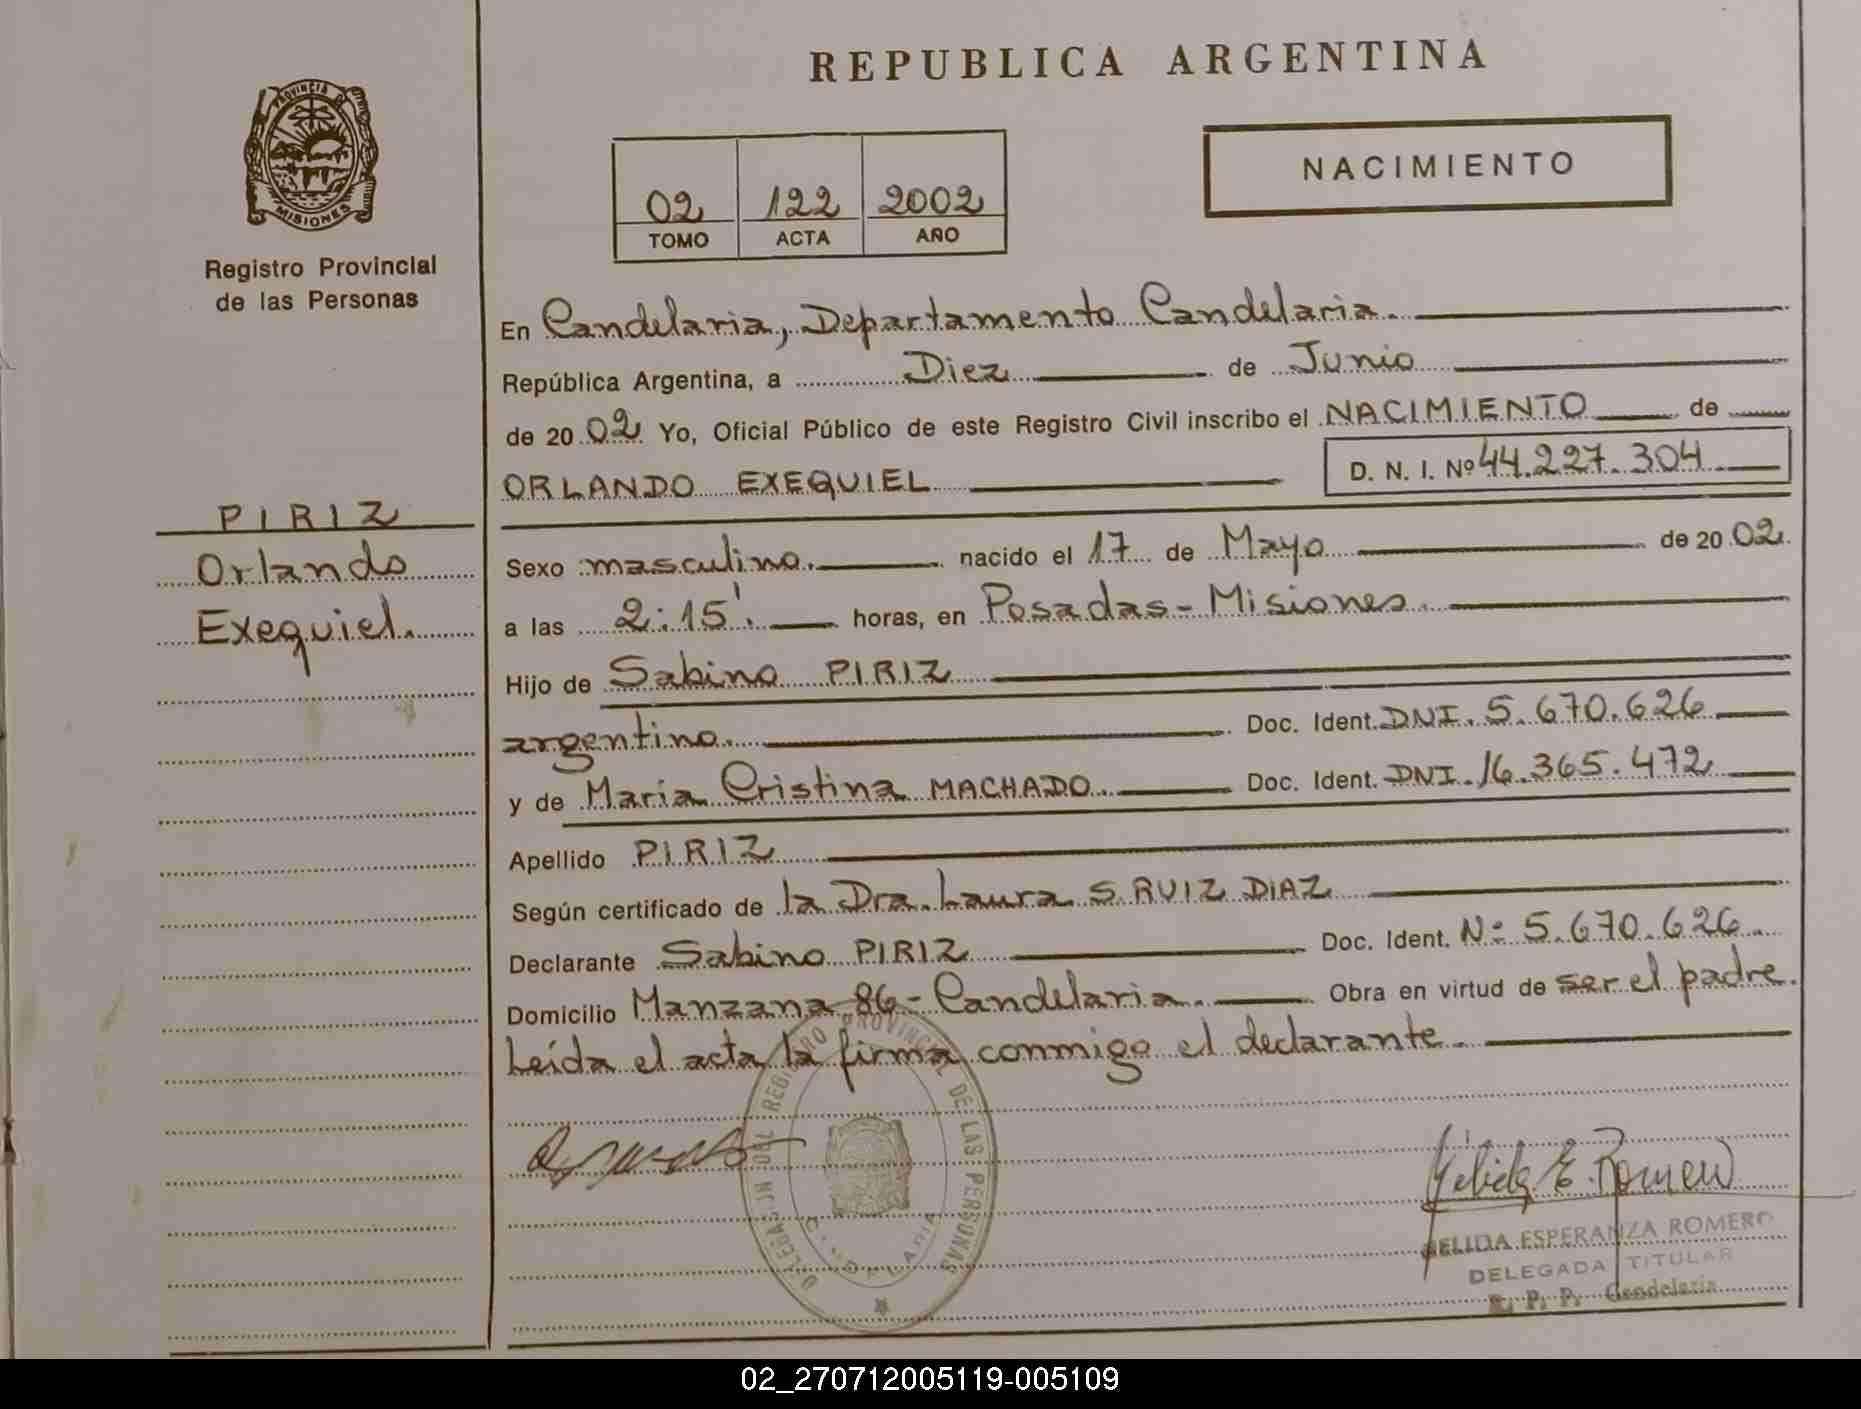 REPUBLICA ARGENTINA
PROVINCIA DE
MISIONES
Registro Provincial
de las Personas
NACIMIENTO
02 122 2002
TOMO ACTA AÑO
En Candelaria, Departamento Candelaria.
República Argentina, a Diez de Junio
de 20 02 Yo, Oficial Público de este Registro Civil inscribo el NACIMIENTO de
ORLANDO EXEQUIEL D. N. I. Nº 44.227.304
PIRIZ
Orlando
Exequiel.
Sexo masculino. nacido el 17 de Mayo de 20 02.
a las 2:15'. horas, en Posadas - Misiones.
Hijo de Sabino PIRIZ
argentino. Doc. Ident. DNI. 5.670.626
y de María Cristina MACHADO. Doc. Ident. DNI. 16.365.472
Apellido PIRIZ
Según certificado de la Dra. Laura S. RUIZ DIAZ
Declarante Sabino PIRIZ Doc. Ident. Nº 5.670.626.
Domicilio Manzana 86 - Candelaria. Obra en virtud de ser el padre.
Leída el acta la firma conmigo el declarante.
DELEGACION REGISTRO PROVINCIAL DE LAS PERSONAS
CANDELARIA
Nelida E. Romero
NELIDA ESPERANZA ROMERO
DELEGADA TITULAR
R. P. P. Candelaria
02_270712005119-005109